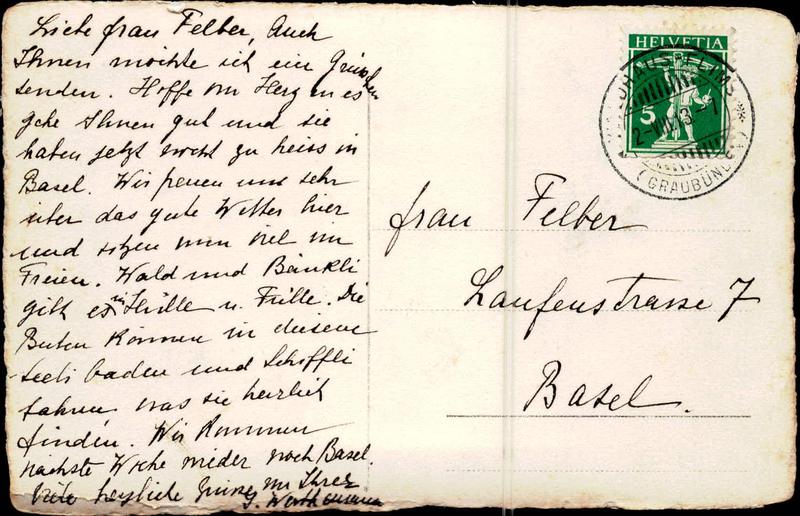 Liebe Frau Felber, Auch
Ihnen möchte ich ein Grüsschen
senden. Hoffe von Herzen es
gehe Ihnen gut und sie
haben jetzt nicht zu heiss in
Basel. Wir freuen uns sehr
über das gute Wetter hier
und sitzen nun viel im
Freien. Wald und Bänkli
gibt es in Hülle u. Fülle. Die
Buben können in diesem
Seeli baden und Schiffli
fahren, was sie herrlich
finden. Wir kommen
nächste Woche wieder nach Basel.
herzliche Grüsse von Ihrer
HELVETIA
5
WALDHAUS-FLIMS
(GRAUBÜND
Frau Felber
Laufenstrasse 7
Basel.